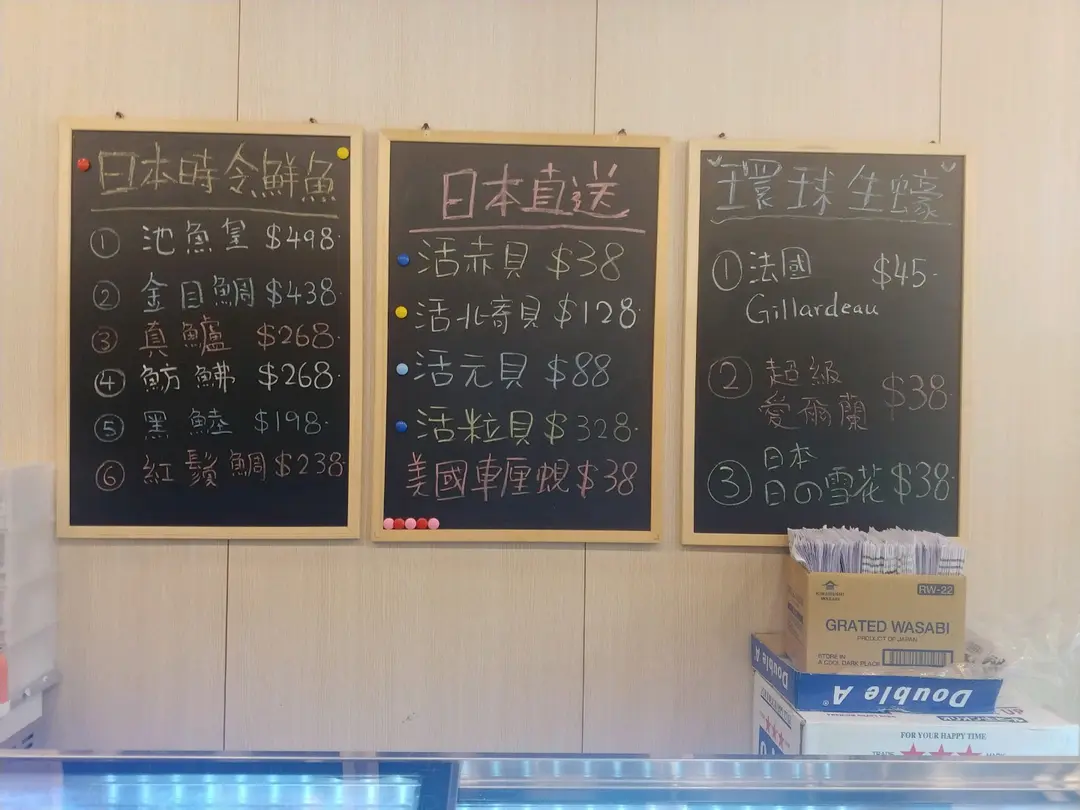 日本時令鮮魚
① 池魚皇 $498.
② 金目鯛 $438.
③ 真鱸 $268.
④ 魴鮄 $268.
⑤ 黑鯥 $198.
⑥ 紅鬚鯛 $238.
日本直送
活赤貝 $38
活北寄貝 $128.
活元貝 $88
活粒貝 $328.
美國車厘蜆 $38
環球生蠔
① 法國 $45.
Gillardeau
② 超級
愛爾蘭 $38.
③ 日本
日の雪花 $38.
RW-22
GRATED WASABI
PRODUCT OF JAPAN
STORE IN
A COOL DARK PLACE
Double A
FOR YOUR HAPPY TIME
TRADE MARK